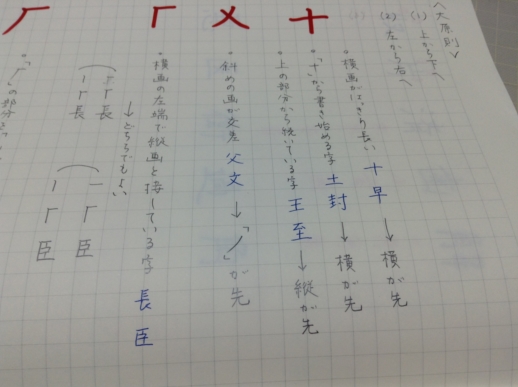 〈大原則〉
(1) 上から下へ
(2) 左から右へ
十
・横画がはっきり長い 十早 → 横が先
・「十」から書き始める字 土封 → 横が先
・上の部分から続いている字 王至 → 縦が先
乂
・斜めの画が交差 父文 → 「ノ」が先
・横画の左端で縦画と接している字 長臣
→どちらでもよい
長
長
臣
臣